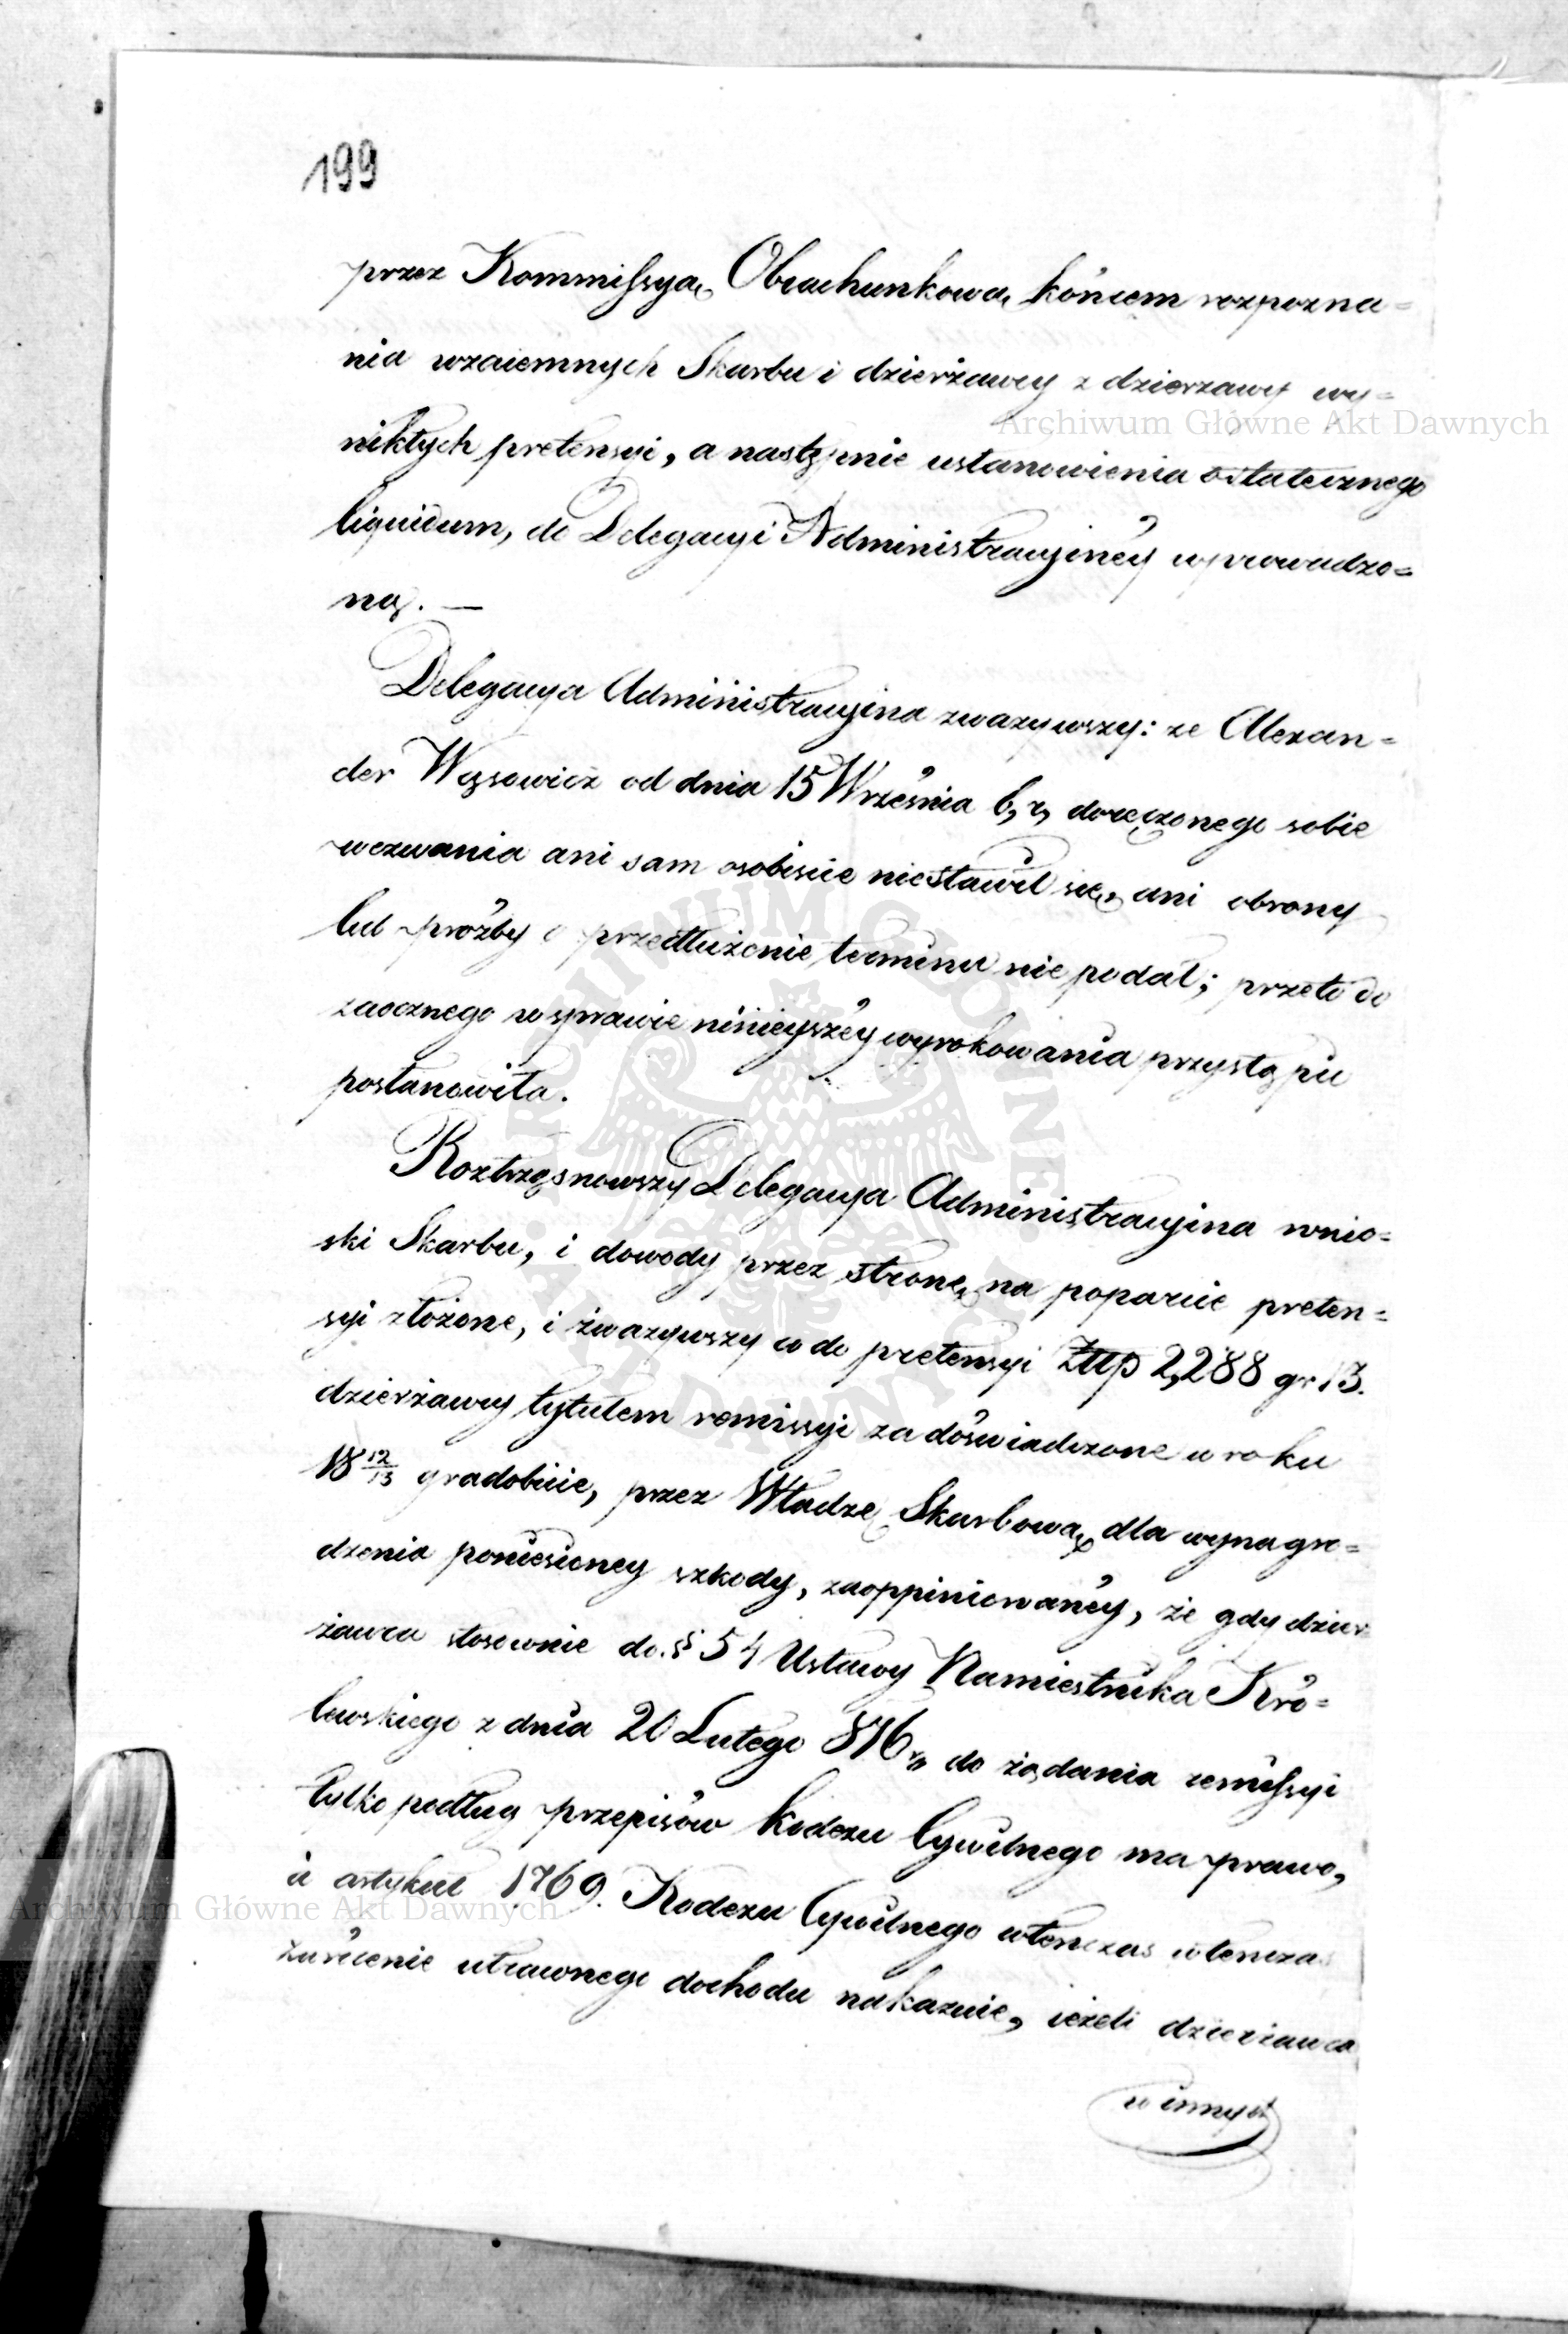 199
przez Kommissyą Obrachunkową końcem rozpozna=
nia wzaiemnych Skarbu i dzierżawcy z dzierzawy wy=
nikłych pretensyi, a następnie ustanowienia ostatecznego
liquidum, do Delegacyi Administracyinéy wprowadzo=
ną. —
Delegacya Administracyina zwazywszy: ze Alexan=
der Wąsowicz od dnia 15 Września b, r, doręczonego sobie
wezwania ani sam osobiscie niestawił się, ani obrony
lub proźby o przedłużenie terminu nie podał; przeto do
zaocznego w sprawie ninieyszéy wyrokowania przystąpić
postanowiła.
Roztrząsnowszy Delegacya Administracyina wnio=
ski Skarbu, i dowody przez stronę na poparcie preten=
syi złożone, i zwazywszy co do pretensyi Złłp 2,288 gr 13.
dzierżawcy tytułem remissyi za doświadczone w roku
18 12/13 gradobicie, przez Władzę Skarbową dla wynagro=
dzenia poniesioney szkody, zaoppiniowanéy, że gdy dzier=
żawca stosownie do § 54 Ustawy Namiestnika Kró=
lewskiego z dnia 20 Lutego 816 r, do żądania remissyi
tylko podług przepisów Kodexu Cywilnego ma prawo,
a artykuł 1769. Kodexu Cywilnego wtenczas wtenczas
zwrócenie utraconego dochodu nakazuie, ieżeli dzierżawca
w innych
Archiwum Główne Akt Dawnych
Archiwum Główne Akt Dawnych
ARCHIWUM GŁÓWNE AKT DAWNYCH